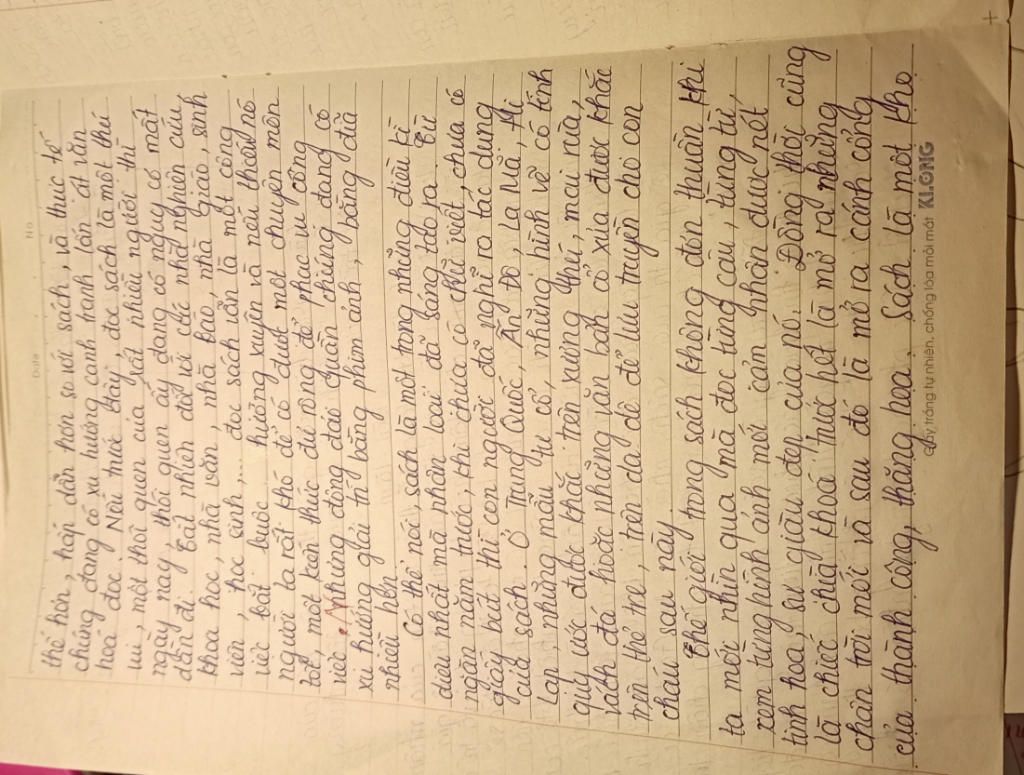 No
Date
thế hơn, hấp dẫn hơn so với sách, và thực tế
chúng đang có xu hướng cạnh tranh lấn át văn
hoá đọc. Nếu trước đây, đọc sách là một thú
vui, một thói quen của rất nhiều người thì
ngày nay thói quen ấy đang có nguy cơ mất
dần đi. Tất nhiên đối với các nhà nghiên cứu,
khoa học, nhà văn, nhà báo, nhà giáo, sinh
viên, học sinh,... đọc sách vẫn là một công
việc bắt buộc thường xuyên và nếu thiếu nó
người ta rất khó để có được một chuyên môn
tốt, một kiến thức đủ rộng để phục vụ công
việc. Nhưng đông đảo quần chúng đang có
xu hướng giải trí bằng phim ảnh, băng đĩa
nhiều hơn.
Có thể nói, sách là một trong những điều kì
diệu nhất mà nhân loại đã sáng tạo ra. Từ
ngàn năm trước, khi chưa có chữ viết, chưa có
giấy bút thì con người đã nghĩ ra tác dụng
của sách. Ở Trung Quốc, Ấn Độ, La Mã, Hi
Lạp, những mẫu tự cổ, những hình vẽ có tính
quy ước được khắc trên xương thú, mai rùa,
vách đá hoặc những văn bản cổ xưa được khắc
trên thẻ tre, trên da dê để lưu truyền cho con
cháu sau này.
Thế giới trong sách không đơn thuần khi
ta mới nhìn qua mà đọc từng câu, từng từ,
xem từng hình ảnh mới cảm nhận được nét
tinh hoa, sự giàu đẹp của nó. Đồng thời cũng
là chiếc chìa khoá trước hết là mở ra những
chân trời mới và sau đó là mở ra cánh cổng
của thành công, thăng hoa. Sách là một kho
giấy trắng tự nhiên, chống lóa mỏi mắt KLONG